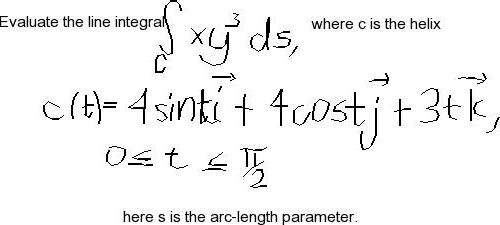 Evaluate the line integral ∫_C xy³ ds, where c is the helix
c(t) = 4sint i⃗ + 4cost j⃗ + 3t k⃗,
0 ≤ t ≤ π/2
here s is the arc-length parameter.